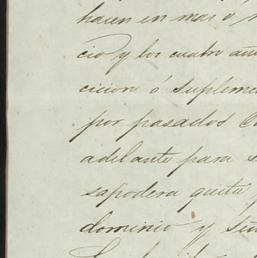 hacen en mas ó
cio y los cuatro añ
cicion ó supleme
por pasados
adelante para
sapodera quita
dominio y señ